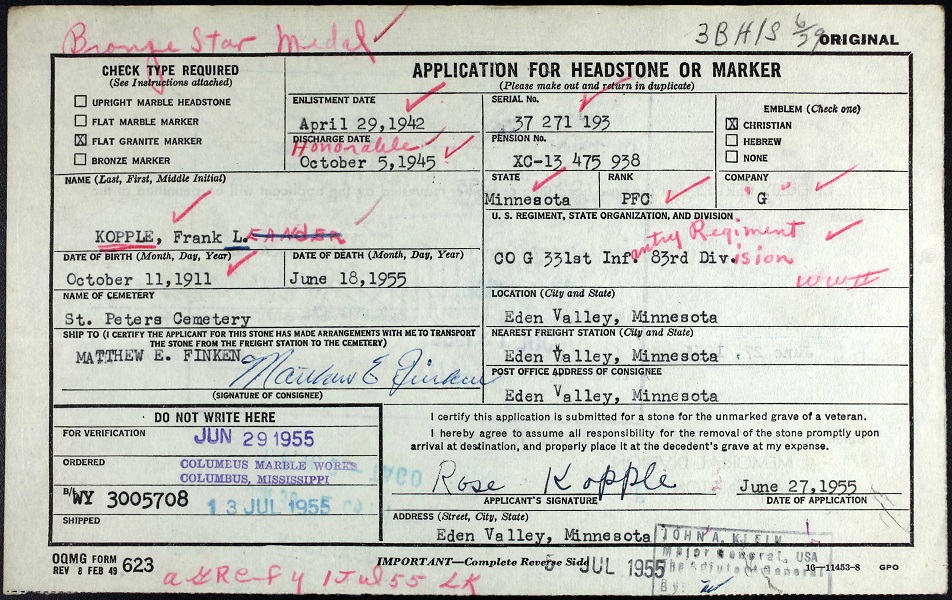 Bronze Star Medal
3BH/S 6/39 ORIGINAL
CHECK TYPE REQUIRED
(See Instructions attached)
UPRIGHT MARBLE HEADSTONE
FLAT MARBLE MARKER
X FLAT GRANITE MARKER
BRONZE MARKER
APPLICATION FOR HEADSTONE OR MARKER
(Please make out and return in duplicate)
ENLISTMENT DATE
April 29,1942
DISCHARGE DATE
Honorable
October 5,1945
SERIAL No.
37 271 193
PENSION No.
XC-13 475 938
EMBLEM (Check one)
X CHRISTIAN
HEBREW
NONE
NAME (Last, First, Middle Initial)
KOPPLE, Frank L. EANDER
STATE
Minnesota
RANK
PFC
COMPANY
"G"
U. S. REGIMENT, STATE ORGANIZATION, AND DIVISION
CO G 331st Inf. antry Regiment 83rd Div. ision
WWII
DATE OF BIRTH (Month, Day, Year)
October 11,1911
DATE OF DEATH (Month, Day, Year)
June 18,1955
NAME OF CEMETERY
St. Peters Cemetery
LOCATION (City and State)
Eden Valley, Minnesota
SHIP TO (I CERTIFY THE APPLICANT FOR THIS STONE HAS MADE ARRANGEMENTS WITH ME TO TRANSPORT
THE STONE FROM THE FREIGHT STATION TO THE CEMETERY)
MATTHEW E. FINKEN
Matthew E Finken
(SIGNATURE OF CONSIGNEE)
NEAREST FREIGHT STATION (City and State)
Eden Valley, Minnesota
POST OFFICE ADDRESS OF CONSIGNEE
Eden Valley, Minnesota
DO NOT WRITE HERE
FOR VERIFICATION
JUN 29 1955
ORDERED
COLUMBUS MARBLE WORKS
COLUMBUS, MISSISSIPPI
B/L WY 3005708
13 JUL 1955
SHIPPED
I certify this application is submitted for a stone for the unmarked grave of a veteran.
I hereby agree to assume all responsibility for the removal of the stone promptly upon
arrival at destination, and properly place it at the decedent's grave at my expense.
Rose Kopple
June 27,1955
APPLICANT'S SIGNATURE
DATE OF APPLICATION
ADDRESS (Street, City, State)
Eden Valley, Minnesota
JOHN A. KLEIN
Major General, USA
The Adjutant General
By:
OQMG FORM
REV 8 FEB 49 623
IMPORTANT—Complete Reverse Side
5 JUL 1955
16—11453-8 GPO
1 Jul 55 LK